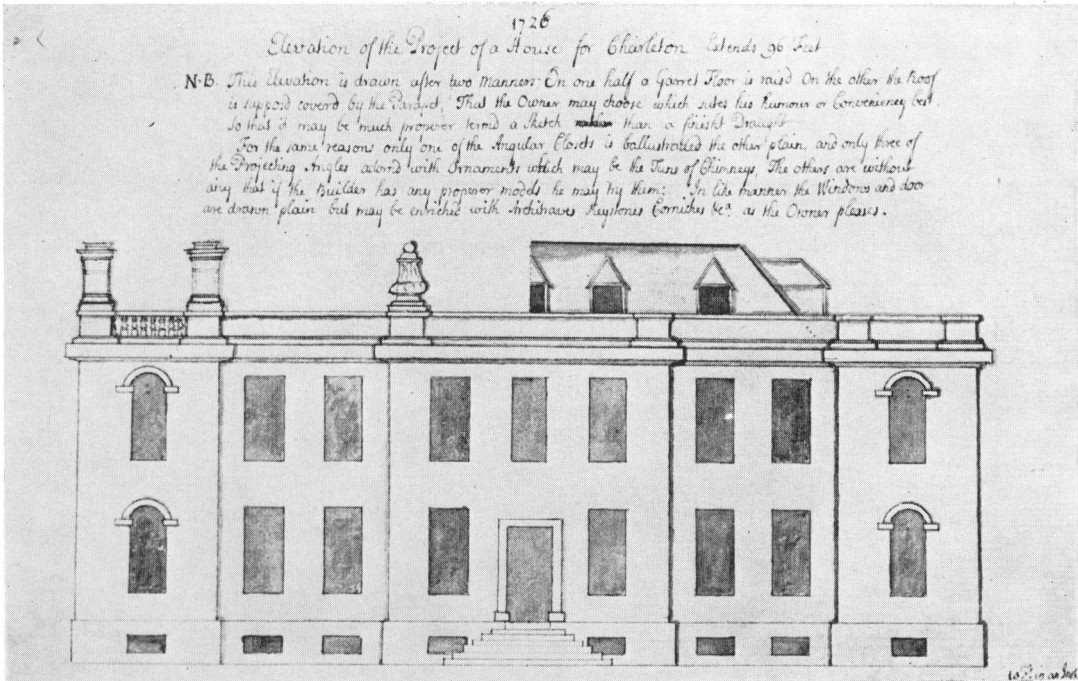 1726
Elevation of the Project of a House for Charleton Extends 96 Feet
N·B. This Elevation is drawn after two manners On one half a Garret Floor is raisd On the other the Roof
is supposd coverd by the Parapet, That the Owner may choose which sutes his humour or Conveniency best
so that it may be much properer termd a Sketch than a finisht Draught
For the same reasons only one of the Angular Closets is ballustraded the other plain, and only three of
the Projecting Angles adornd with Ornaments which may be the Tuns of Chimneys, The others are without
any that if the Builder has any properer models he may try them; In like manner the Windows and door
are drawn plain but may be enriched with Architraves Keystones Cornishes &ca. as the Owner pleases.
10 F. in an Inch